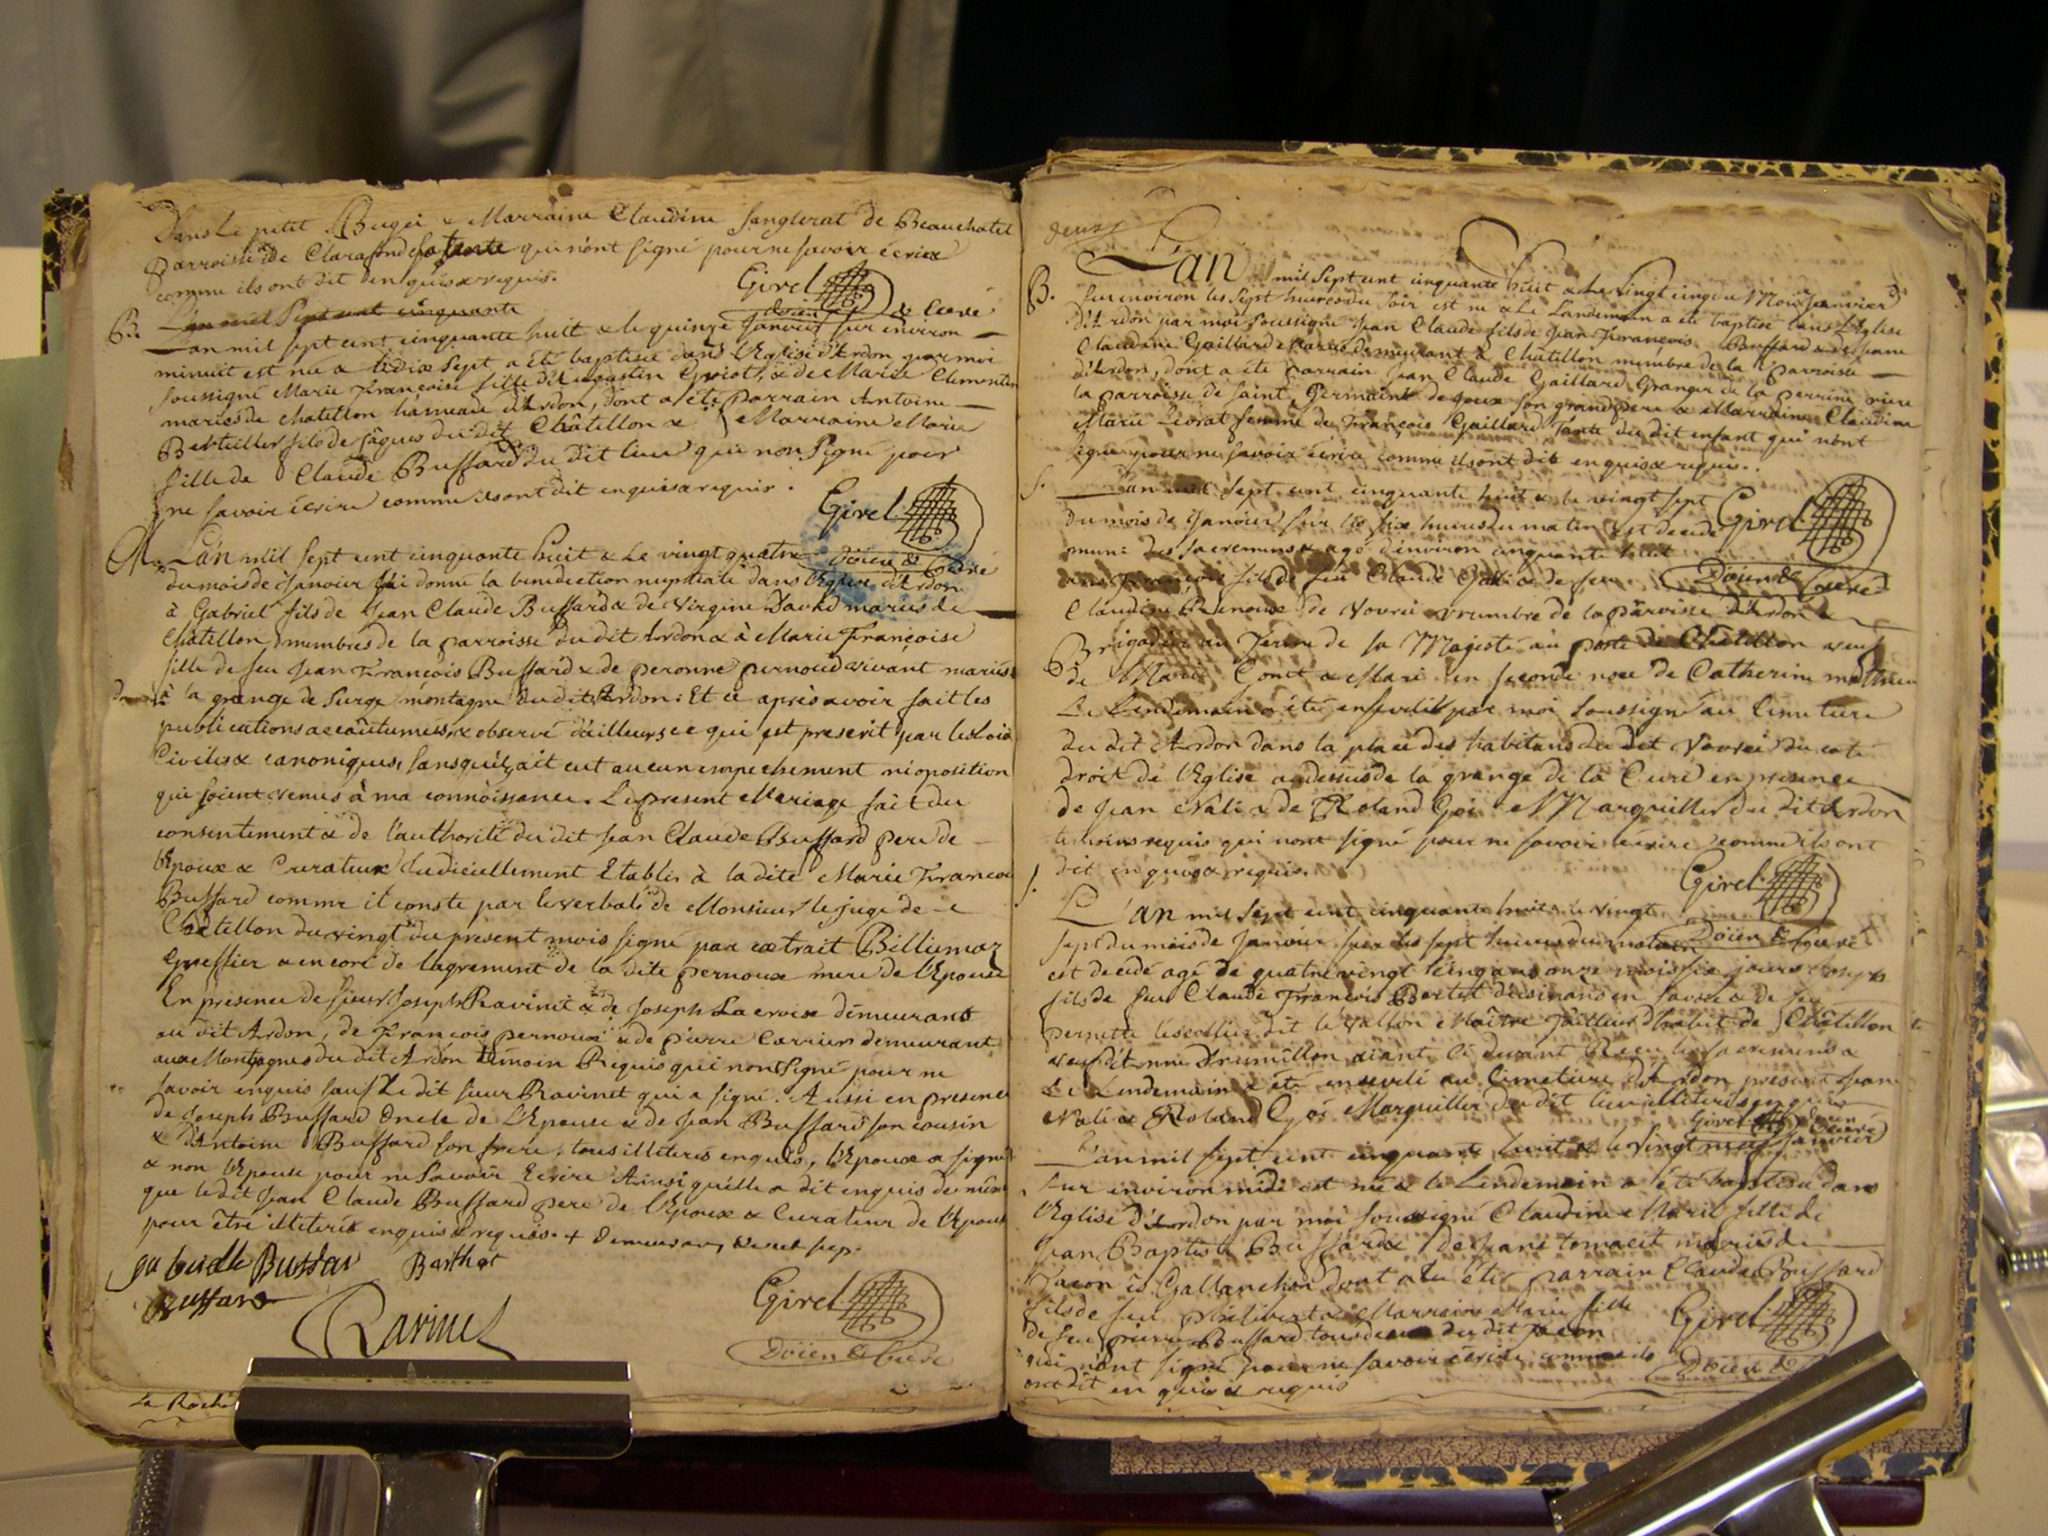 Dans Le petit Bugei & Marraine Claudine Sanglerat de Beauchatel
parroisse de Clarafond sa tante qui n'ont signé pour ne savoir écrire
comme ils ont dit enquis & requis.
Girel
doien & Curé
L'an mil Sept cent cinquante
B. L'an mil sept cent cinquante huit & le quinze Janvier sur environ
minuit est née & le dix Sept a été baptisée dans l'Eglise d'Ardon par moi
soussigné Marie Françoise fille d'Augustin & de Marie
mariés de chatillon hameau d'Ardon, dont a été parrain Antoine
fils de Jâques du dit Châtillon & Marraine Marie
fille de Claude Buffard du dit lieu qui n'on Signé pour
ne savoir écrire comme ils ont dit enquis & requis.
Girel
doien & Curé
M. L'an mil sept cent cinquante huit & le vingt quatre
du mois de Janvier j'ai donné la benediction nuptiale dans l'Eglise d'Ardon
à Gabriel fils de Jean Claude Buffard & de Virgine David mariés de
Châtillon membres de la parroisse du dit Ardon & à Marie Françoise
fille de feu Jean François Buffard & de peronne pernoud vivant mariés
à la grange de Surge montagne du dit Ardon: Et ce après avoir fait les
publications accoûtumées, & observé d'ailleurs ce qui est prescrit par les Lois
Civiles & canoniques, sans qu'il y ait eut aucun empechement ni oposition
qui soient venus à ma connoissance. Le present Mariage fait du
consentement & de l'authorité du dit Jean Claude Buffard pere de
l'Epoux & Curateur Judiciellement Etabli à la dite Marie Françoise
Buffard comme il conste par le verbal de Monsieur le juge de
Châtillon du vingt du present mois signé par extrait Billiemaz
greffier & encore de l'agrement de la dite pernoux mere de l'Epouse
En présence de sieur Joseph Ravinet & de Joseph Lacroix demeurans
au dit Ardon, de François pernoux & de pierre Carrier demeurant
aux Montagnes du dit Ardon témoin Requis qui n'ont Signé pour ne
savoir enquis sauf Le dit sieur Ravinet qui a signé. Aussi en presence
de Joseph Buffard Oncle de L'Epouse & de Jean Buffard son cousin
& d'Antoine Buffard son frere, tous illiteres enquis, l'Epoux a signé
& non l'Epouse pour ne Savoir Ecrire Ainsi qu'elle a dit enquis de même
que le dit Jean Claude Buffard pere de l'Epoux & Curateur de l'Epouse
pour être illiteré enquis & requis.
Buffar Berthet
Buffard
Ravinet
Girel
Doien & Curé
La Roche
deux
B. L'an mil sept cent cinquante huit & le Vingt cinq du Mois de Janvier
sur environ les Sept heures du soir est né & Le Landemain a été baptisé dans l'Eglise
d'Ardon par moi soussigné Jean Claude fils de Jean François Buffard &
Claudine Gaillard mariés demeurant à Châtillon membre de la parroisse
d'Ardon, dont a été parrain Jean Claude Gaillard Granger de la
la parroisse de Saint Germain de Joux son grand pere & Marraine Claudine
Marie femme de François Gaillard Tante du dit enfant qui n'ont
signé pour ne savoir écrire comme ils ont dit enquis & requis.
Girel
Doien & Curé
S. L'an mil sept cent cinquante huit & le vingt sept
du mois de Janvier sur les six heures du matin est decedé
muni des sacremens & agé d'environ cinquante huit
ans François fils de feu Claude & de feu
Claudine de Vouvrei membre de la paroisse d'Ardon &
Brigadier au Ferme de sa Majesté au poste de Châtillon veuf
de Marie & Mari en seconde noce de Catherine
Le Lendemain a été enseveli par moi Soussigné au Cimetiere
du dit Ardon dans la place des habitans du dit Vouvrei du coté
droit de l'Eglise au dessus de la grange de la Cure en presence
de Jean Nali & de Roland Goi Marguiller du dit Ardon
temoins requis qui n'ont signé pour ne savoir écrire comme ils ont
dit enquis & requis.
Girel
Doien & Curé
S. L'an mil sept cent cinquante huit & le vingt
sept du mois de Janvier sur les sept heures du matin
est decedé agé de quatre vingt & cinq ans onze mois six jours Joseph
fils de feu Claude François Bertet en Savoie & de feu
pernette dit le Maître Tailleur d'habit de Châtillon
veuf aiant ci devant Reçu les sacremens &
Le Lendemain a été enseveli au Cimetiere d'Ardon present Jean
Nali & Roland Goi Marguiller du dit lieu illiteres enquis
Girel doien Curé
L'an mil sept cent cinquante huit & le vingt neuf Janvier
sur environ midi est née & le Lendemain a été baptisée dans
l'Eglise d'Ardon par moi soussigné Claudine Marie fille de
Jean Baptiste Buffard & de Jeane mariés de
dont a été parrain Claude Buffard
fils de feu philibert & Marraine Marie fille
de feu pierre Buffard tous deux du dit
qui n'ont signé pour ne savoir écrire comme ils
ont dit enquis & requis
Girel
Doien &